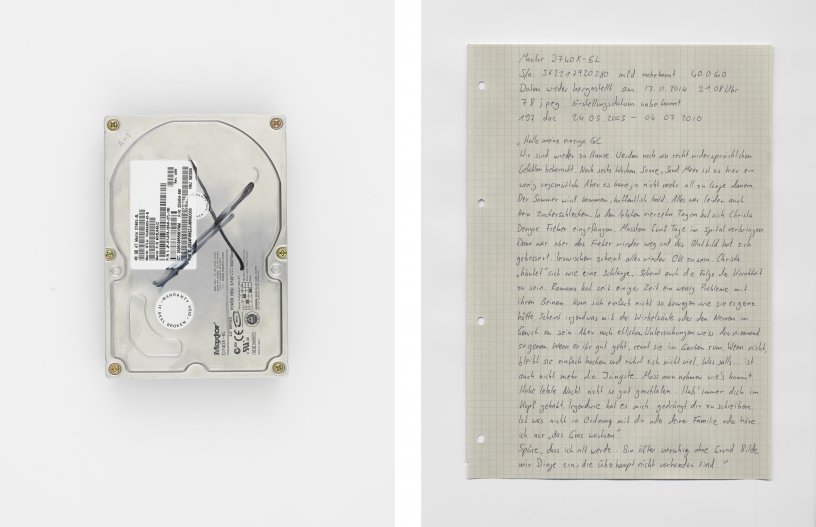 Maxtor
Maxtor D740X-GL
S/n: 512217920280 mfd unbekannt 40.0 GB
Daten wieder hergestellt am 17.11.2014 21:08 Uhr
78 jpeg Erstellungsdatum unbekannt
197 doc 24.09.2003 – 04.07.2010
„Hallo meine einzige GC
Wir sind wieder zu Hause. Werden noch von recht widersprüchlichen
Gefühlen beherrscht. Nach sechs Wochen Sonne, Sand Meer ist es hier ein
wenig ungemütlich. Aber es kann ja nicht mehr all zu lange dauern.
Der Sommer wird kommen, hoffentlich bald. Alles war leider auch
kein Zuckerschlecken. In den letzten vierzehn Tagen hat sich Christa
Dengue Fieber eingefangen. Mussten fünf Tage im Spital verbringen.
Dann war aber das Fieber wieder weg und das Blutbild hat sich
gebessert. Inzwischen scheint alles wieder OK zu sein. Christa
„häutet" sich wie eine Schlange. Scheint auch die Folge der Krankheit
zu sein. Romana hat seit einiger Zeit ein wenig Probleme mit
ihren Beinen. Kann sich einfach nicht so bewegen wie sie es gerne
hätte. Scheint irgendwas mit der Wirbelsäule oder den Nerven im
Genick zu sein. Aber nach etlichen Untersuchungen weiss das niemand
so genau. Wenn es ihr gut geht, rennt sie im Garten rum. Wenn nicht,
bleibt sie einfach hocken und rührt sich nicht viel. Was solls... ist
auch nicht mehr die Jüngste. Muss man nehmen wie's kommt.
Habe letzte Nacht nicht so gut geschlafen. Hab' immer dich im
Kopf gehabt. Irgendwie hat es mich gedrängt dir zu schreiben.
Ist was nicht in Ordnung mit dir oder deiner Familie oder höre
ich nur „das Gras wachsen"
Spüre, dass ich alt werde. Bin öfter unruhig ohne Grund. Bilde
mir Dinge ein, die überhaupt nicht vorhanden sind."